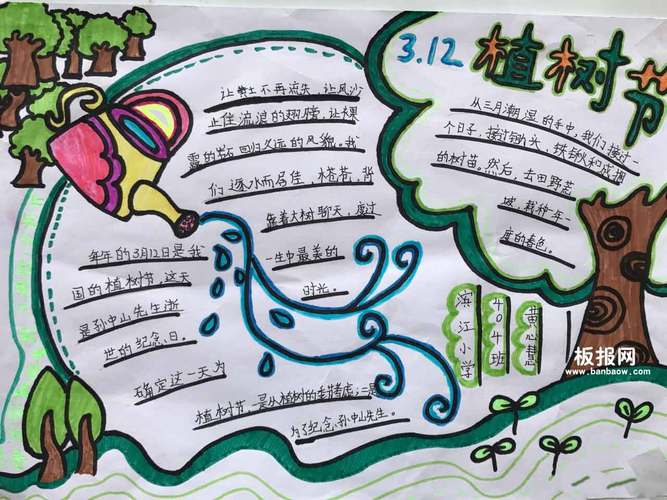 3.12 植树节
让黄土不再流失，让风沙
止住流浪的翅膀，让裸
露的岩石回归久远的风貌。我
们逐水而居住，搭苍，背
靠着大树聊天，度过
一生中最美的
时光。
从三月潮湿的手中，我们接过一
个日子，接过锄头，铁锹和成捆
的树苗。然后，去田野荒
坡，栽种一年一
度的春色。
每年的3月12日是我
国的植树节，这天
是孙中山先生逝
世的纪念日。
确定这一天为
植树节，一是从植树的季节考虑；二是
为了纪念孙中山先生。
滨江小学
404班
黄心慧
板报网
www.banbaow.com